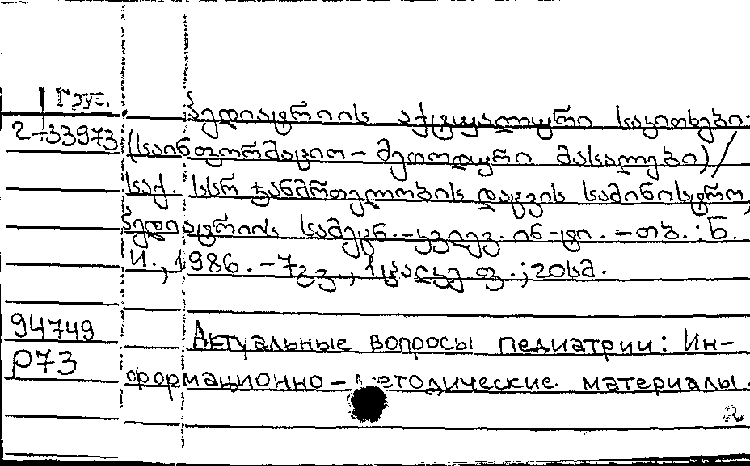 Груз.
პედიატრიის აქტუალური საკითხები:
2-33973 (საინფორმაციო-მეთოდური მასალები)/
საქ. სსრ ჯანმრთელობის დაცვის სამინისტრო,
პედიატრიის სამეცნ.-კვლევ. ინ-ტი. - თბ.: Б.
И., 1986. - 7გვ., 1 ცალკე ფ.; 20სმ.
94749 Актуальные вопросы педиатрии: Ин-
P73 формационно-методические материалы.